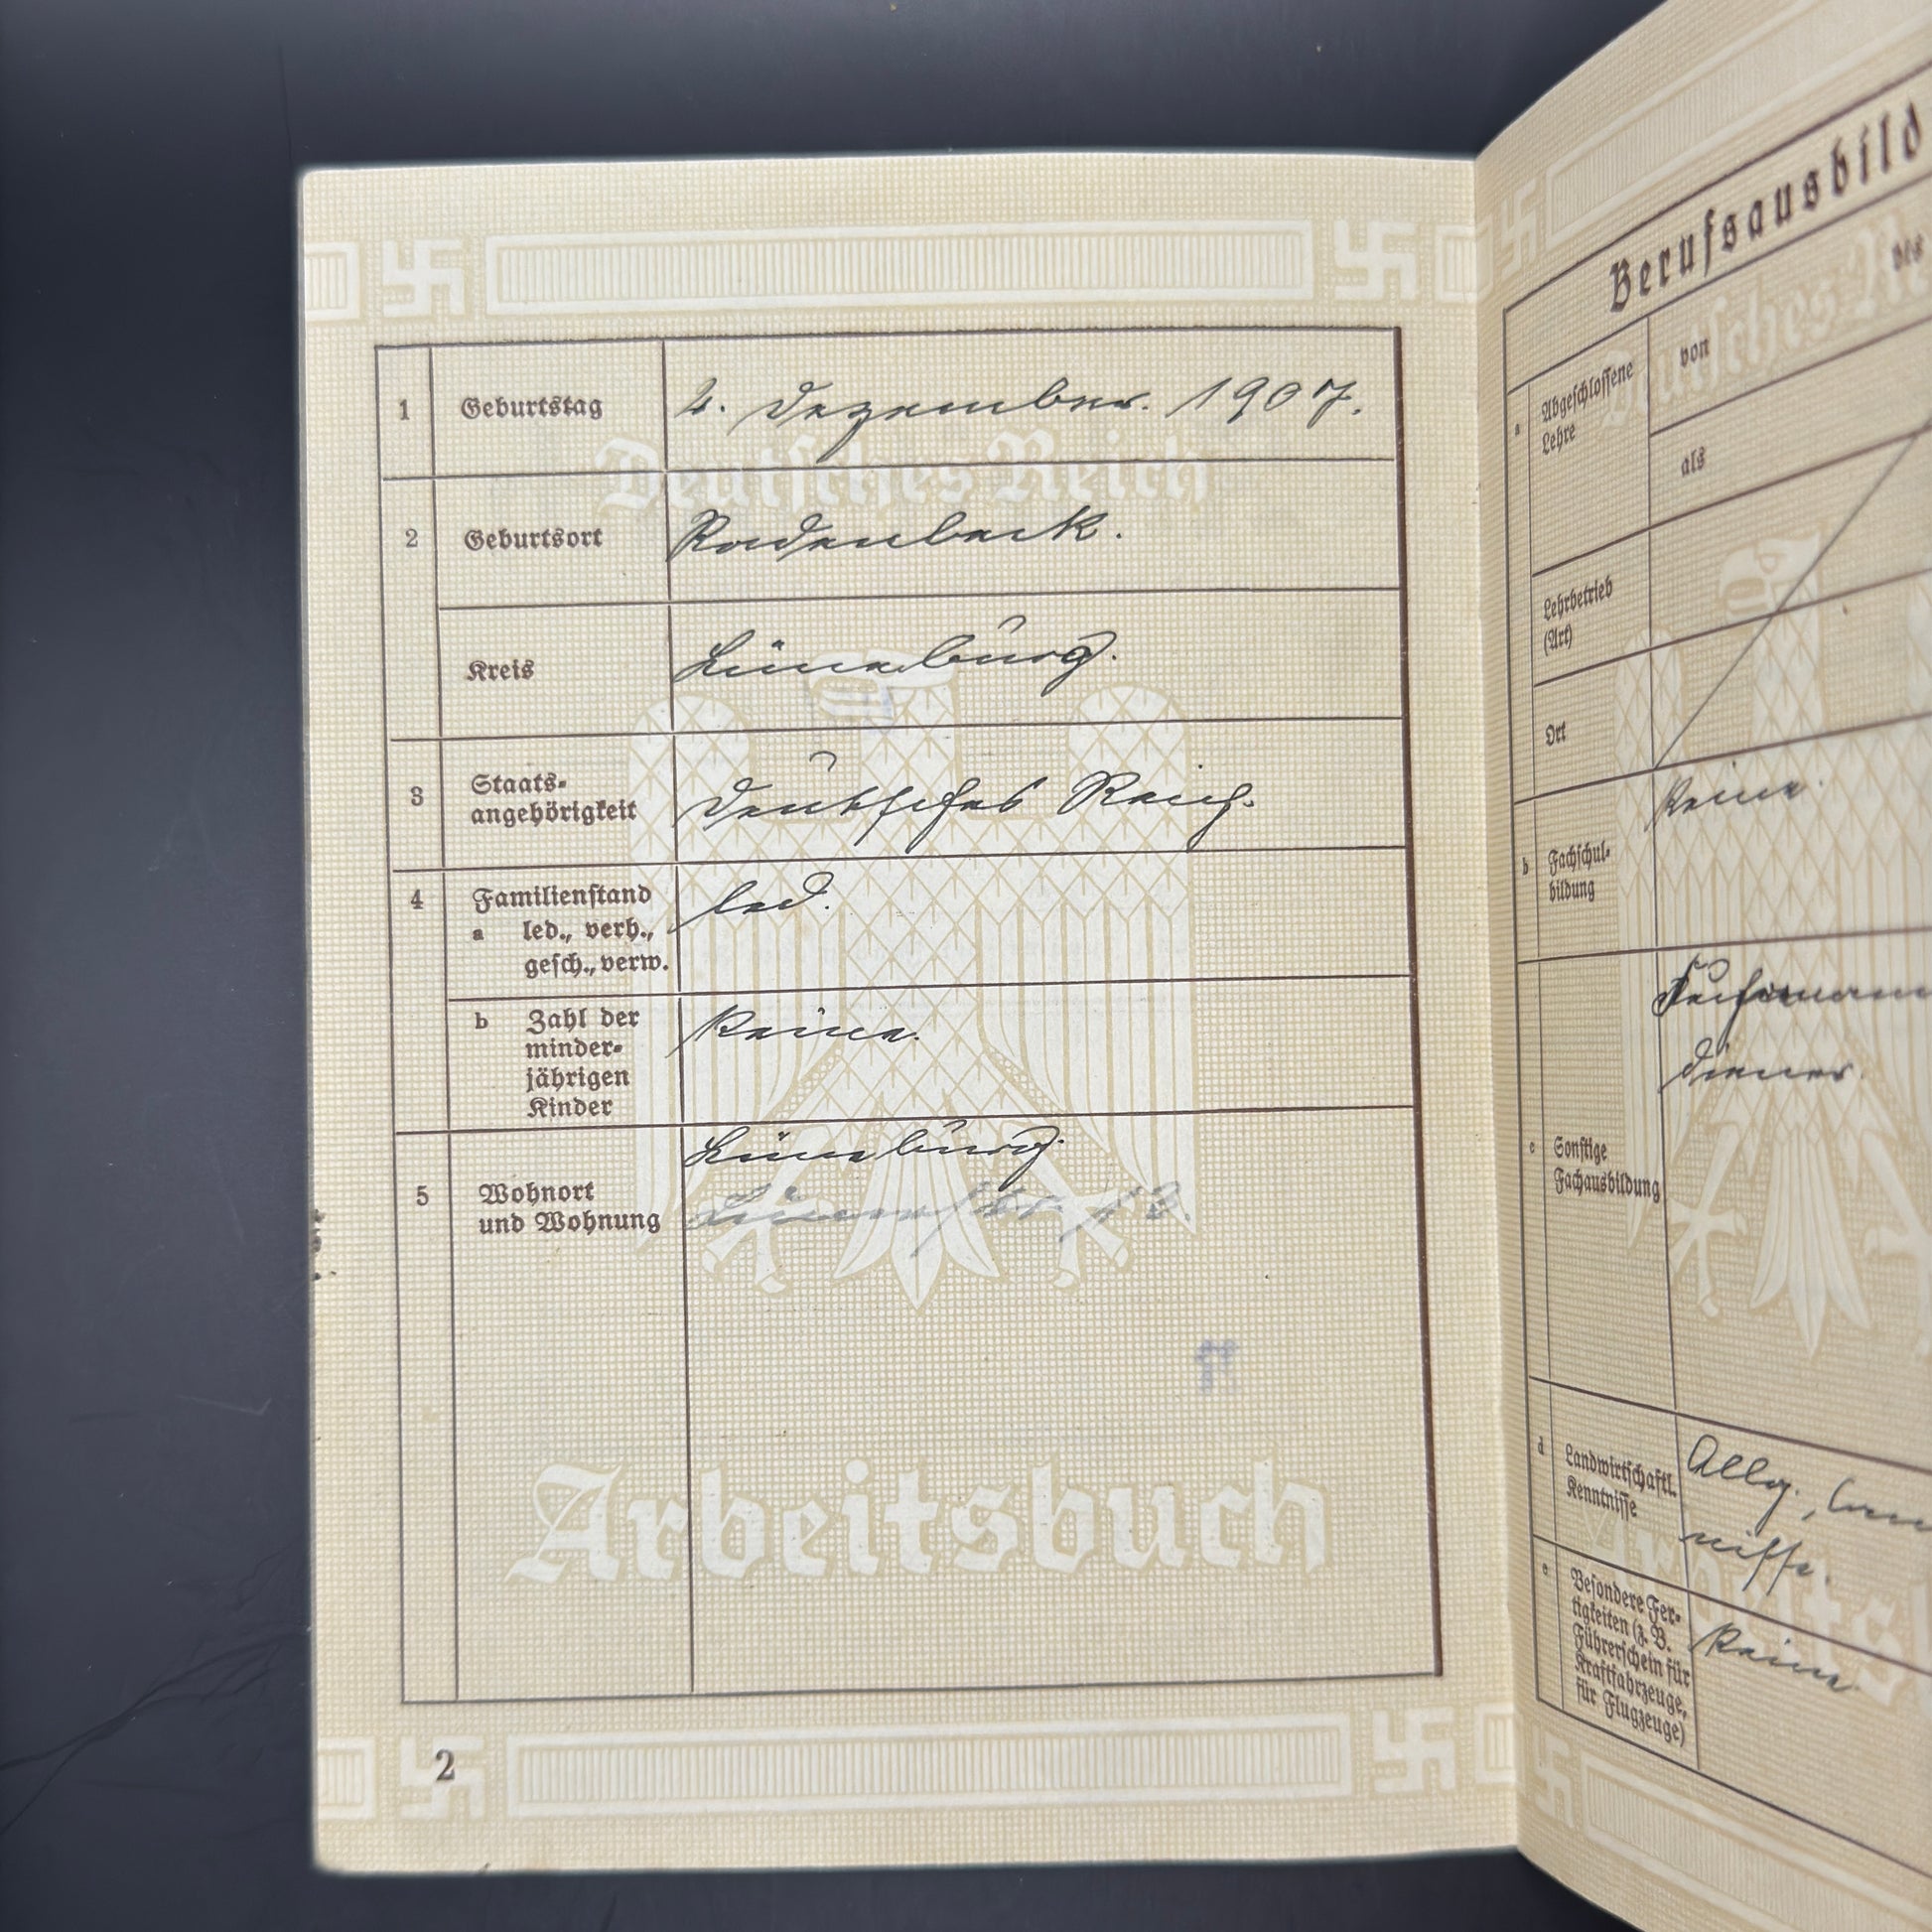 Deutsches Reich
1 Geburtstag 2. Dezember. 1907.
2 Geburtsort Radenbeck.
Kreis Lüneburg.
3 Staats-
angehörigkeit Deutsches Reich.
4 Familienstand led.
a led., verh.,
gesch., verw.
b Zahl der Keine.
minder-
jährigen
Kinder
Lüneburg.
5 Wohnort
und Wohnung 13.
Arbeitsbuch
2
Berufsausbild
Deutsches R
des
a Abgeschlossene
Lehre
von
als
Lehrbetrieb
(Art)
Ort
b Fachschul-
bildung
Keine.
diener.
c Sonstige
Fachausbildung
d Landwirtschaftl.
Kenntnisse
Allg.,
nisse.
e Besondere Fer-
tigkeiten (z. B.
Führerschein für
Kraftfahrzeuge,
für Flugzeuge)
Keine
Arbeits